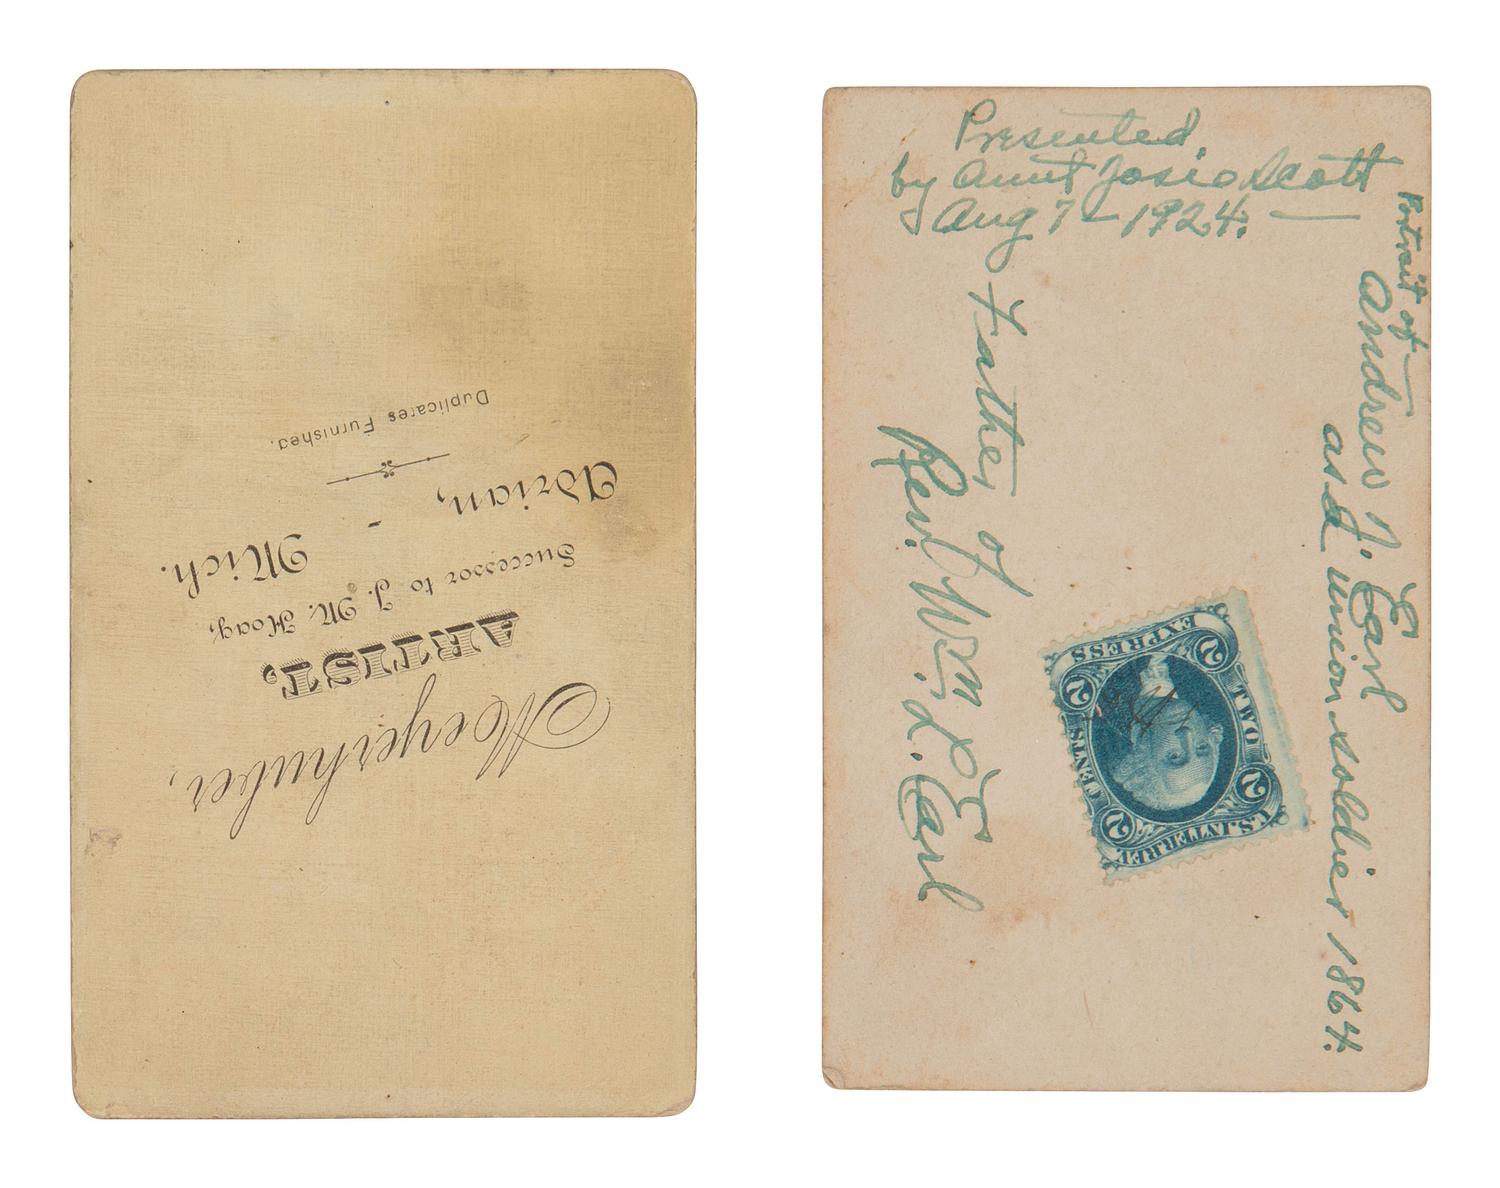 Moeyerhuber,
ARTIST,
Successor to J. M. Hoag,
Adrian, - Mich.
Duplicares Furnished.
Presented
by Aunt Josie Scott
Aug 7 - 1924. —
Portrait of
Andrew J. Earl
as a union soldier 1864.
Father of
Rev. Wm. L. Earl
U.S. INTER. REV.
2 2
EXPRESS
TWO
CENTS
2 2